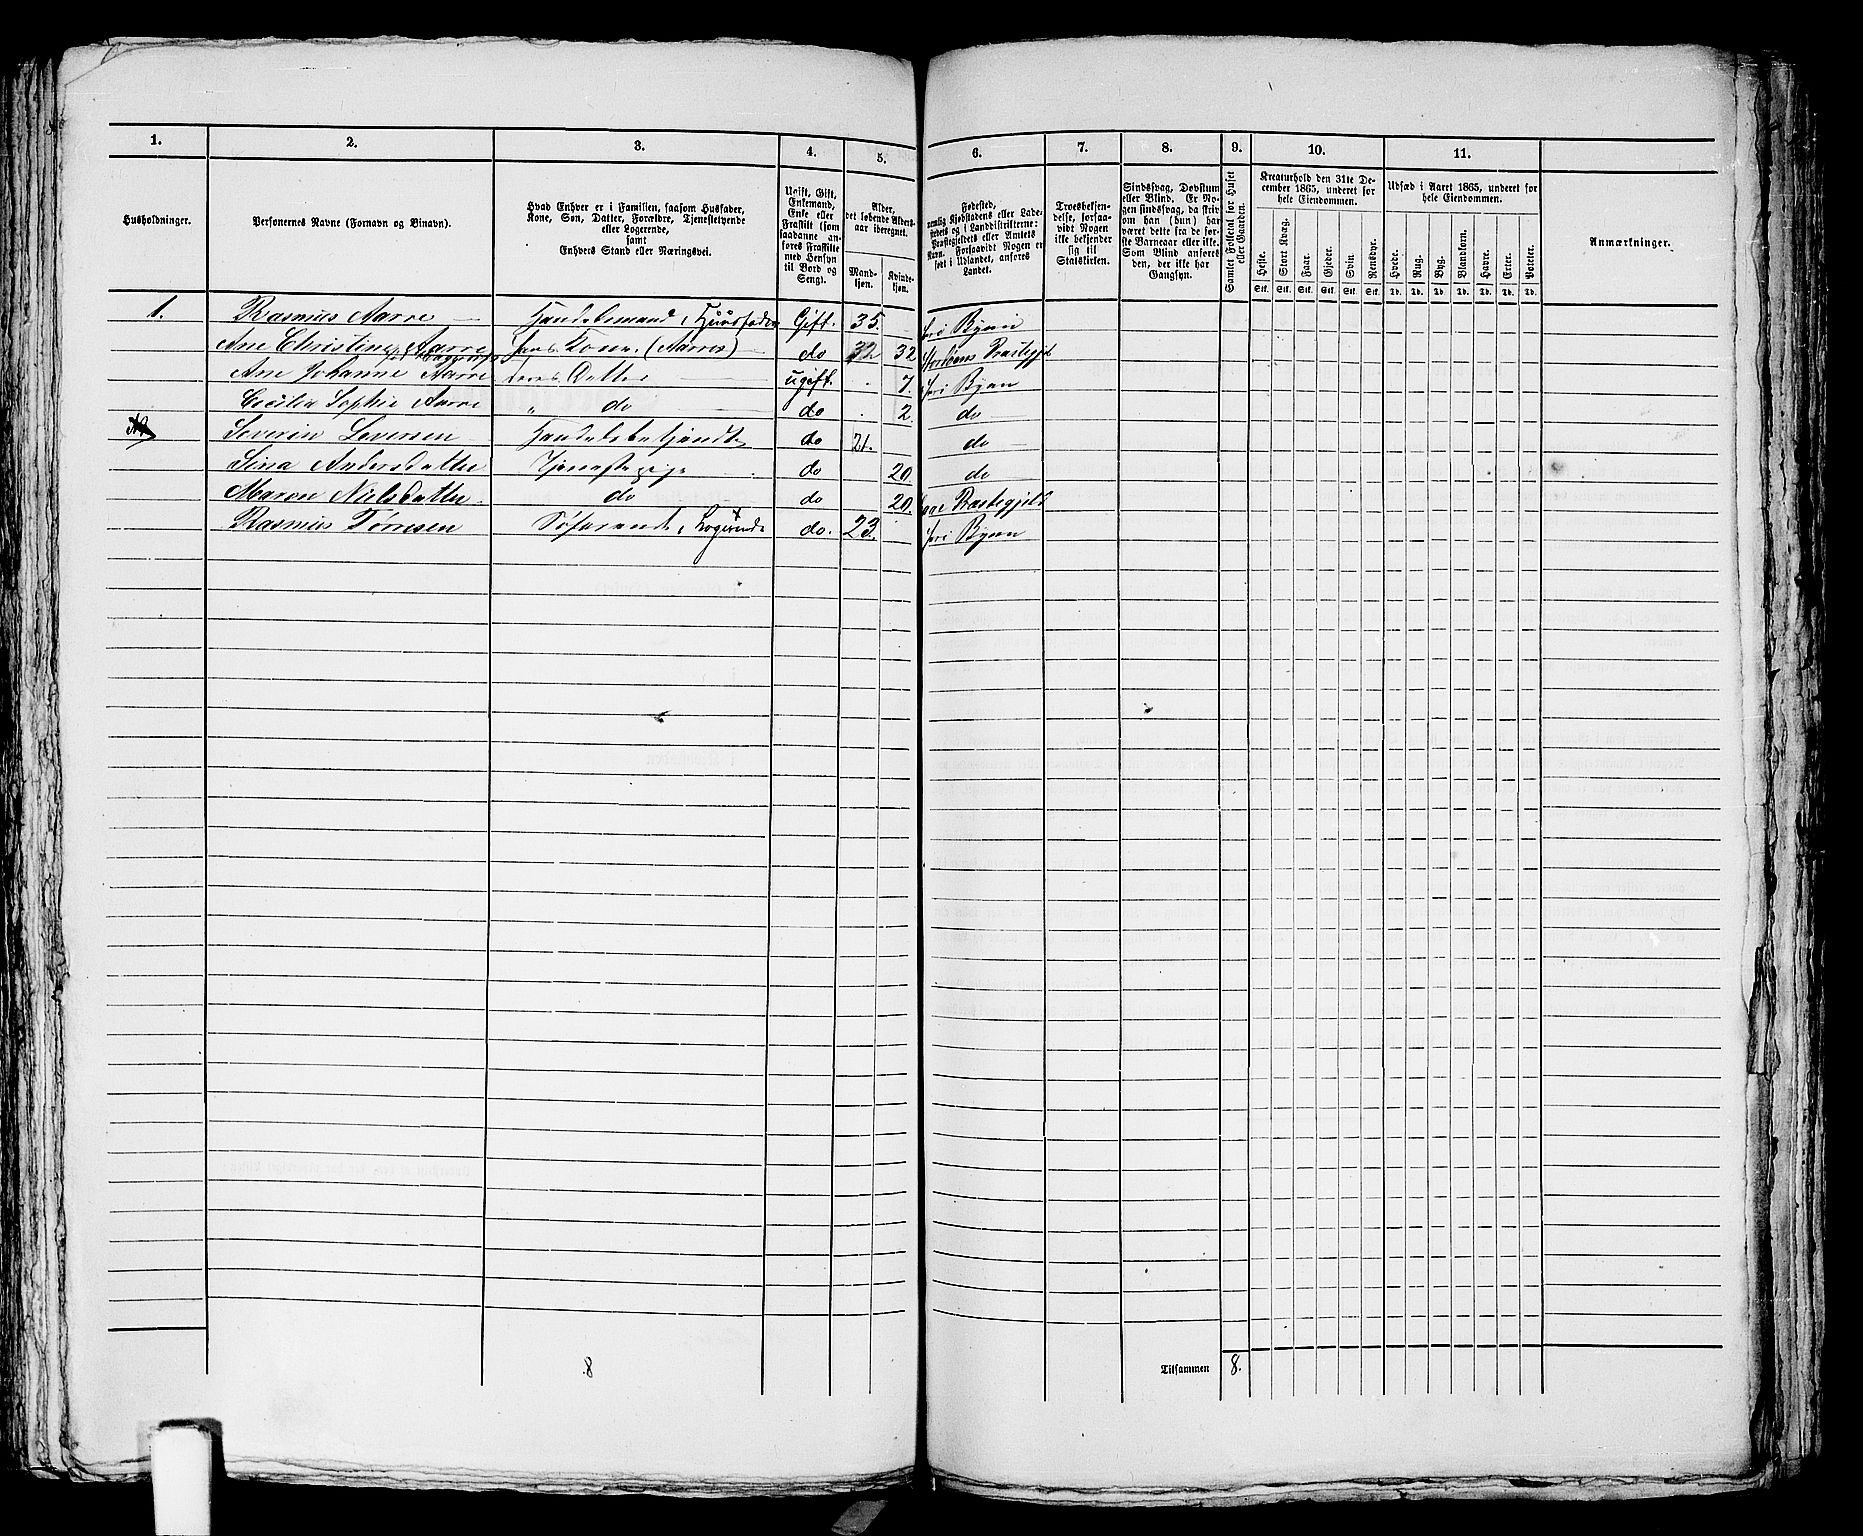 1. 2. 3. 4. 5. 6. 7. 8. 9. 10. 11.
Husholdninger.
Personernes Navne (Fornavn og Binavn).
Hvad Enhver er i Familien, saasom Husfader,
Kone, Søn, Datter, Forældre, Tjenestetyende
eller Logerende,
samt
Enhvers Stand eller Næringsvei.
Ugift, Gift,
Enkemand,
Enke eller
Fraskilt (som
saadanne an-
føres Fraskilte
med Hensyn
til Bord og
Seng).
Alder,
det løbende Alders-
aar iberegnet.
Mand-
kjøn.
Kvinde-
kjøn.
Fødested,
nemlig Kjøbstadens eller Lade-
stedets og i Landdistrikterne:
Præstegjeldets eller Amtets
Navn. Forsaavidt Nogen er
født i Udlandet, anføres
Landet.
Troesbekjen-
delse, forsaa-
vidt Nogen
ikke bekjender
sig til
Statskirken.
Sindssvag, Døvstum
eller Blind. Er No-
gen sindssvag, da skriv
om han (hun) har
været dette fra de før-
ste Barneaar eller ikke.
Som Blind anføres
den, der ikke har
Gangsyn.
Samlet Folketal for Huset
eller Gaarden.
Kreaturhold den 31te De-
cember 1865, underet for
hele Eiendommen.
Heste. Stort Kvæg. Faar. Gjeder. Svin. Rensdyr.
Stk. Stk. Stk. Stk. Stk. Stk.
Udsæd i Aaret 1865, underet for
hele Eiendommen.
Hvede. Rug. Byg. Blandkorn. Havre. Erter. Poteter.
Td. Td. Td. Td. Td. Td. Td.
Anmærkninger.
1. Rasmus Aarre Handelsmand, Huusfader Gift. 35. her i Byen
Ane Christine Aarre hans Kone. (Aarres) do 32 32 Præstegjeld
Ane Johanne Aarre Datter ugift. 7. her i Byen
Cecilia Sophie Aarre " do do 2. do
Severin Seversen Handelsbetjendt do 21. do
Sina Andersdatter Tjenestepige do 20. do
Maren Nielsdatter do do 20. Præstegjeld
Rasmus Tørresen Søfarende, Logerende do. 23. her i Byen
8 Tilsammen 8.